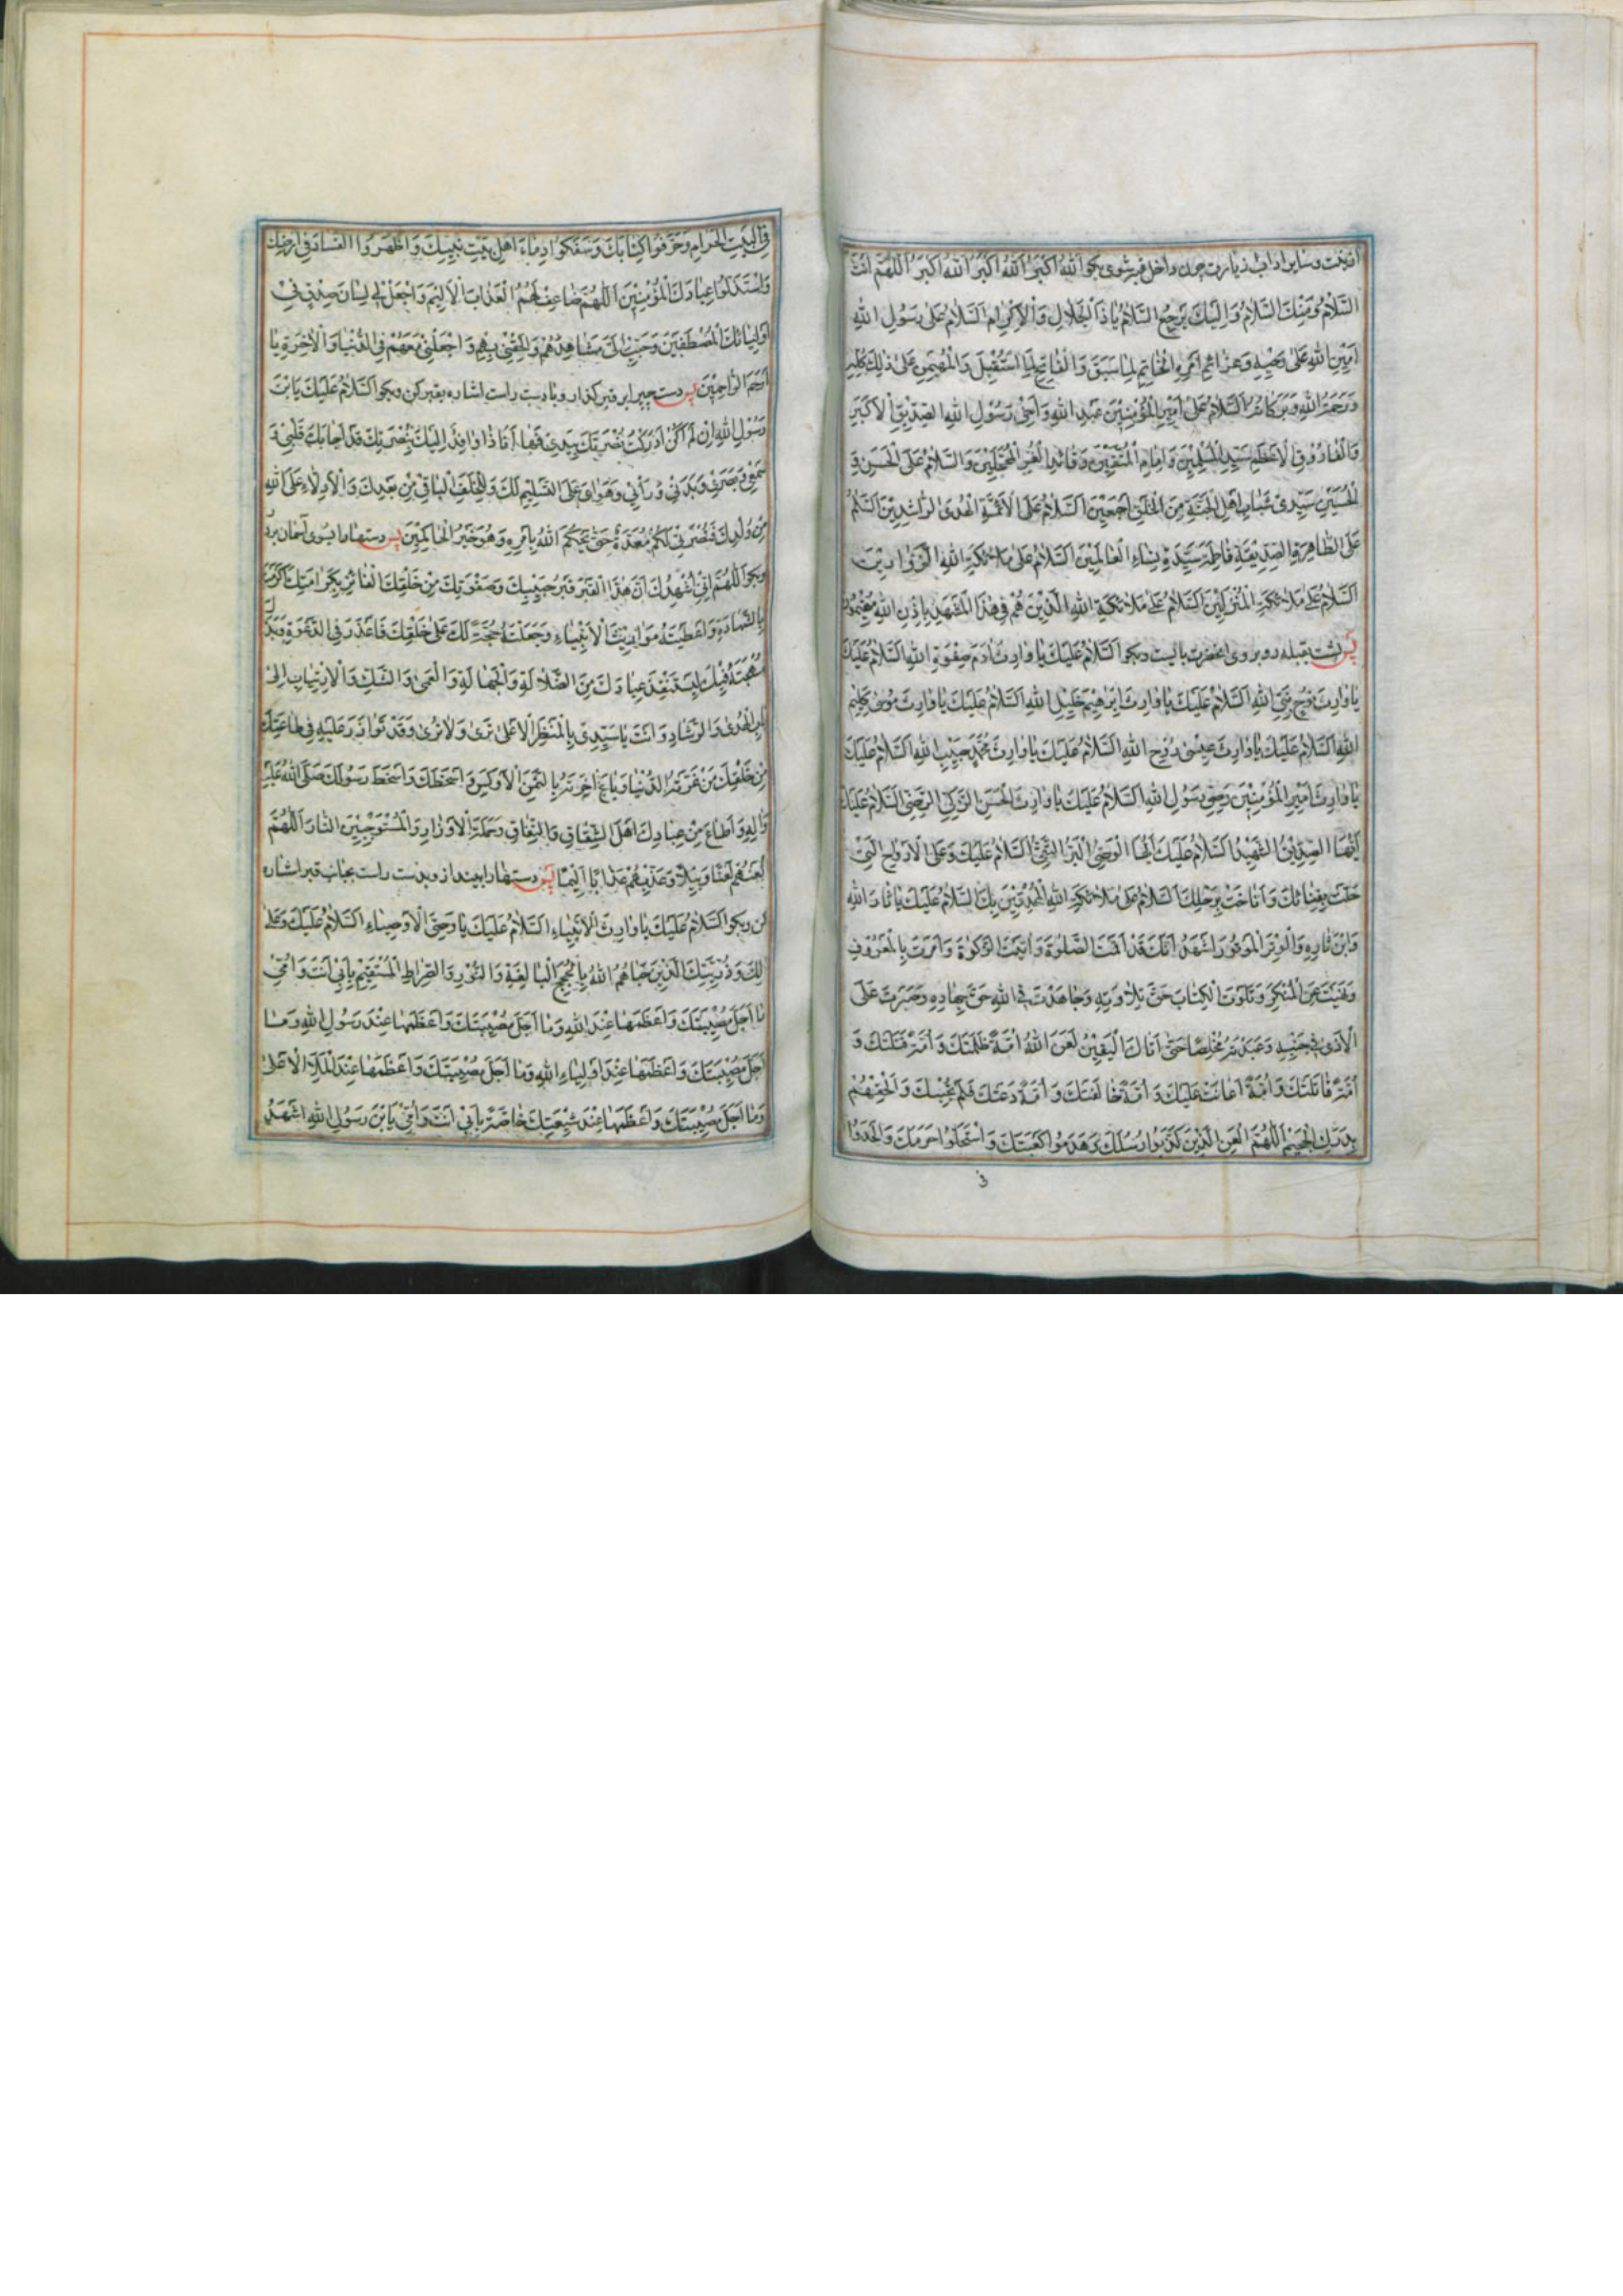 وسایر اداب زیارت چون داخل قبر شوی بکو اَللهُ اَکبَرُ اَللهُ اَکبَرُ اَللهُ اَکبَرُ اَللّهُمَّ اَنتَ
السَّلامُ وَمِنْكَ السَّلامُ وَاِلَیْكَ یَرْجِعُ السَّلامُ یاذَا الْجَلالِ وَالْاِکْرامِ اَلسَّلامُ عَلی رَسُولِ اللهِ
اَمِینِ اللهِ عَلی وَحْیِهِ وَعَزائِمِ اَمْرِهِ الْخاتِمِ لِما سَبَقَ وَالْفاتِحِ لِمَا اسْتُقْبِلَ وَالْمُهَیْمِنِ عَلی ذلِكَ کُلِّهِ
وَرَحْمَةُ اللهِ وَبَرَکاتُهُ اَلسَّلامُ عَلی اَمِیرِ الْمُؤْمِنِینَ عَبْدِ اللهِ وَاَخِی رَسُولِ اللهِ الصِّدِّیقِ الْاَکْبَرِ
وَالْفارُوقِ الْاَعْظَمِ سَیِّدِ الْمُسْلِمِینَ وَاِمامِ الْمُتَّقِینَ وَقائِدِ الْغُرِّ الْمُحَجَّلِینَ وَالسَّلامُ عَلَی الْحَسَنِ وَ
الْحُسَیْنِ سَیِّدَیْ شَبابِ اَهْلِ الْجَنَّةِ مِنَ الْخَلْقِ اَجْمَعِینَ اَلسَّلامُ عَلَی الْاَئِمَّةِ الْهُدَی الرّاشِدِینَ اَلسَّلامُ
عَلَی الطّاهِرَةِ الصِّدِّیقَةِ فاطِمَةَ سَیِّدَةِ نِساءِ الْعالَمِینَ اَلسَّلامُ عَلی مَلائِکَةِ اللهِ الزَّوّارِینَ
اَلسَّلامُ عَلی مَلائِکَةِ الْمُنْزَلِینَ اَلسَّلامُ عَلی مَلائِکَةِ اللهِ الَّذِینَ هُمْ فِی هذَا الْمَشْهَدِ بِاِذْنِ اللهِ مُقِیمُونَ
پس پشت بقبله رو بروی انحضرت بایست وبکو اَلسَّلامُ عَلَیْكَ یا وارِثَ ادَمَ صِفْوَةِ اللهِ اَلسَّلامُ عَلَیْكَ
یا وارِثَ نُوحٍ نَبِیِّ اللهِ اَلسَّلامُ عَلَیْكَ یا وارِثَ اِبْرهِیمَ خَلِیلِ اللهِ اَلسَّلامُ عَلَیْكَ یا وارِثَ مُوسی کَلِیمِ
اللهِ اَلسَّلامُ عَلَیْكَ یا وارِثَ عِیسی رُوحِ اللهِ اَلسَّلامُ عَلَیْكَ یا وارِثَ مُحَمَّدٍ حَبِیبِ اللهِ اَلسَّلامُ عَلَیْكَ
یا وارِثَ اَمِیرِ الْمُؤْمِنِینَ وَصِیِّ رَسُولِ اللهِ اَلسَّلامُ عَلَیْكَ یا وارِثَ الْحَسَنِ الزَّکِیِّ الرَّضِیِّ اَلسَّلامُ عَلَیْكَ
اَیُّهَا الصِّدِّیقُ الشَّهِیدُ اَلسَّلامُ عَلَیْكَ اَیُّهَا الْوَصِیُّ الْبَرُّ التَّقِیُّ اَلسَّلامُ عَلَیْكَ وَعَلَی الْاَرْواحِ الَّتِی
حَلَّتْ بِفِنائِكَ وَاَناخَتْ بِرَحْلِكَ اَلسَّلامُ عَلی مَلائِکَةِ اللهِ الْمُحْدِقِینَ بِكَ اَلسَّلامُ عَلَیْكَ یا ثارَ اللهِ
وَابْنَ ثارِهِ وَالْوِتْرَ الْمَوْتُورَ اَشْهَدُ اَنَّكَ قَدْ اَقَمْتَ الصَّلوةَ وَاتَیْتَ الزَّکوةَ وَاَمَرْتَ بِالْمَعْرُوفِ
وَنَهَیْتَ عَنِ الْمُنْکَرِ وَتَلَوْتَ الْکِتابَ حَقَّ تِلاوَتِهِ وَجاهَدْتَ فِی اللهِ حَقَّ جِهادِهِ وَصَبَرْتَ عَلَی
الْاَذی فِی جَنْبِهِ وَعَبَدْتَهُ مُخْلِصًا حَتّی اَتاكَ الْیَقِینُ لَعَنَ اللهُ اُمَّةً ظَلَمَتْكَ وَاُمَّةً قَتَلَتْكَ وَ
اُمَّةً قاتَلَتْكَ وَاُمَّةً اَعانَتْ عَلَیْكَ وَاُمَّةً خالَفَتْكَ وَاُمَّةً دَعَتْكَ فَلَمْ تُجِبْكَ وَاَلْحِقْهُمْ
بِدَرْكِ الْجَحِیمِ اَللّهُمَّ الْعَنِ الَّذِینَ کَذَّبُوا رُسُلَكَ وَهَدَمُوا کَعْبَتَكَ وَاسْتَحَلُّوا حَرَمَكَ وَاَلْحَدُوا
فی
فِی الْبَیْتِ الْحَرامِ وَحَرَّفُوا کِتابَكَ وَسَفَکُوا دِماءَ اَهْلِ بَیْتِ نَبِیِّكَ وَاَظْهَرُوا الْفَسادَ فِی اَرْضِكَ
وَاسْتَذَلُّوا عِبادَكَ الْمُؤْمِنِینَ اَللّهُمَّ ضاعِفْ لَهُمُ الْعَذابَ الْاَلِیمَ وَاجْعَلْ لِی لِسانَ صِدْقٍ فِی
اَوْلِیائِكَ الْمُصْطَفَیْنَ وَحَبِّبْ اِلَیَّ مَشاهِدَهُمْ وَاَلْحِقْنِی بِهِمْ وَاجْعَلْنِی مَعَهُمْ فِی الدُّنْیا وَالْاخِرَةِ یا
اَرْحَمَ الرّاحِمِینَ پس دست چپ را بر قبر کذار وبا دست راست اشاره بقبر کن وبکو اَلسَّلامُ عَلَیْكَ یَا بْنَ
رَسُولِ اللهِ اِنْ لَمْ اَکُنْ اَدْرَکْتُ نُصْرَتَكَ بِیَدِی فَها اَنَا ذا وافِدٌ اِلَیْكَ بِنُصْرَتِكَ قَدْ اَجابَكَ قَلْبِی وَ
سَمْعِی وَبَصَرِی وَبَدَنِی وَرَاْیِی وَهَوایَ عَلَی التَّسْلِیمِ لَكَ وَلِلْخَلَفِ الْباقِی مِنْ بَعْدِكَ وَالْاَدِلّاءِ عَلَی اللهِ
مِنْ وُلْدِكَ فَنُصْرَتِی لَکُمْ مُعَدَّةٌ حَتّی یَحْکُمَ اللهُ بِاَمْرِهِ وَهُوَ خَیْرُ الْحاکِمِینَ پس دستها را بسوی آسمان بردار
وبکو اَللّهُمَّ اِنِّی اَشْهَدُ اَنَّ هذَا الْقَبْرَ قَبْرُ حَبِیبِكَ وَصَفْوَتِكَ مِنْ خَلْقِكَ الْفائِزِ بِکَرامَتِكَ اَکْرَمْتَهُ
بِالشَّهادَةِ وَاَعْطَیْتَهُ مَوارِیثَ الْاَنْبِیاءِ وَجَعَلْتَهُ حُجَّةً لَكَ عَلی خَلْقِكَ فَاَعْذَرَ فِی الدَّعْوَةِ وَبَذَلَ
مُهْجَتَهُ فِیكَ لِیَسْتَنْقِذَ عِبادَكَ مِنَ الضَّلالَةِ وَالْجَهالَةِ وَالْعَمی وَالشَّكِّ وَالْاِرْتِیابِ اِلی
بابِ الْهُدی وَالرَّشادِ وَاَنْتَ یا سَیِّدِی بِالْمَنْظَرِ الْاَعْلی تَری وَلا تُری وَقَدْ تَوازَرَ عَلَیْهِ فِی طاعَتِكَ
مِنْ خَلْقِكَ مَنْ غَرَّتْهُ الدُّنْیا وَباعَ اخِرَتَهُ بِالثَّمَنِ الْاَوْکَسِ وَاَسْخَطَكَ وَاَسْخَطَ رَسُولَكَ صَلَّی اللهُ عَلَیْهِ
وَالِهِ وَاَطاعَ مِنْ عِبادِكَ اَهْلَ الشِّقاقِ وَالنِّفاقِ وَحَمَلَةَ الْاَوْزارِ وَالْمُسْتَوْجِبِینَ النّارَ اَللّهُمَّ
الْعَنْهُمْ لَعْنًا وَبِیلًا وَعَذِّبْهُمْ عَذابًا اَلِیمًا پس دستها را بینداز وبدست راست بجانب قبر اشاره
کن وبکو اَلسَّلامُ عَلَیْكَ یا وارِثَ الْاَنْبِیاءِ اَلسَّلامُ عَلَیْكَ یا وَصِیَّ الْاَوْصِیاءِ اَلسَّلامُ عَلَیْكَ وَعَلی
الِكَ وَذُرِّیَّتِكَ الَّذِینَ حَباهُمُ اللهُ بِالْحُجَجِ الْبالِغَةِ وَالنُّورِ وَالصِّراطِ الْمُسْتَقِیمِ بِاَبِی اَنْتَ وَاُمِّی
ما اَجَلَّ مُصِیبَتَكَ وَاَعْظَمَها عِنْدَ اللهِ وَما اَجَلَّ مُصِیبَتَكَ وَاَعْظَمَها عِنْدَ رَسُولِ اللهِ وَما
اَجَلَّ مُصِیبَتَكَ وَاَعْظَمَها عِنْدَ اَوْلِیاءِ اللهِ وَما اَجَلَّ مُصِیبَتَكَ وَاَعْظَمَها عِنْدَ الْمَلَأِ الْاَعْلی
وَما اَجَلَّ مُصِیبَتَكَ وَاَعْظَمَها عِنْدَ شِیعَتِكَ خاصَّةً بِاَبِی اَنْتَ وَاُمِّی یَا بْنَ رَسُولِ اللهِ اَشْهَدُ